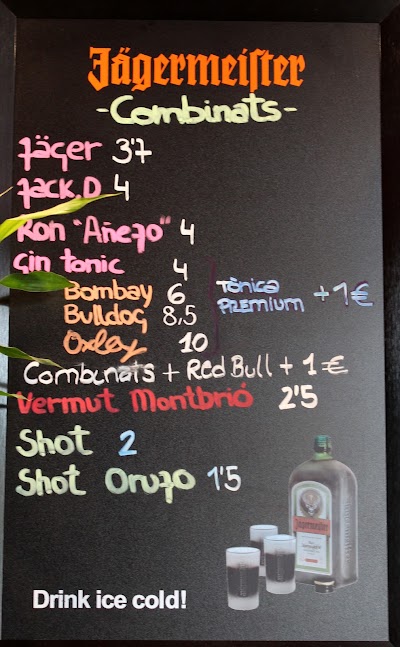 Jägermeiſter
-Combinats-
Jäger 3'7
Jack.D 4
Ron "Añejo" 4
Gin tonic 4
Bombay 6
Bulldog 8,5
Oxley 10
Tònica PREMIUM + 1€
Combinats + Red Bull + 1€
Vermut Montbrió 2'5
Shot 2
Shot Orujo 1'5
Jägermeister
Drink ice cold!